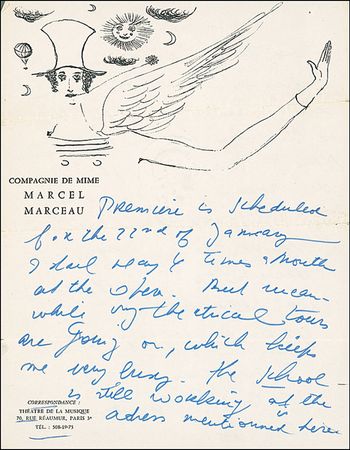 COMPAGNIE DE MIME
MARCEL
MARCEAU
Premiere is scheduled
for the 22nd of January
I shall play 6 times a Month
at the Open. But mean-
while my theatrical tours
are going on, which keeps
me very busy. The School
is still working at the
adress mentionned here
in
CORRESPONDANCE :
THÉATRE DE LA MUSIQUE
70, RUE RÉAUMUR, PARIS 3e
TÉL. : 508-19-75